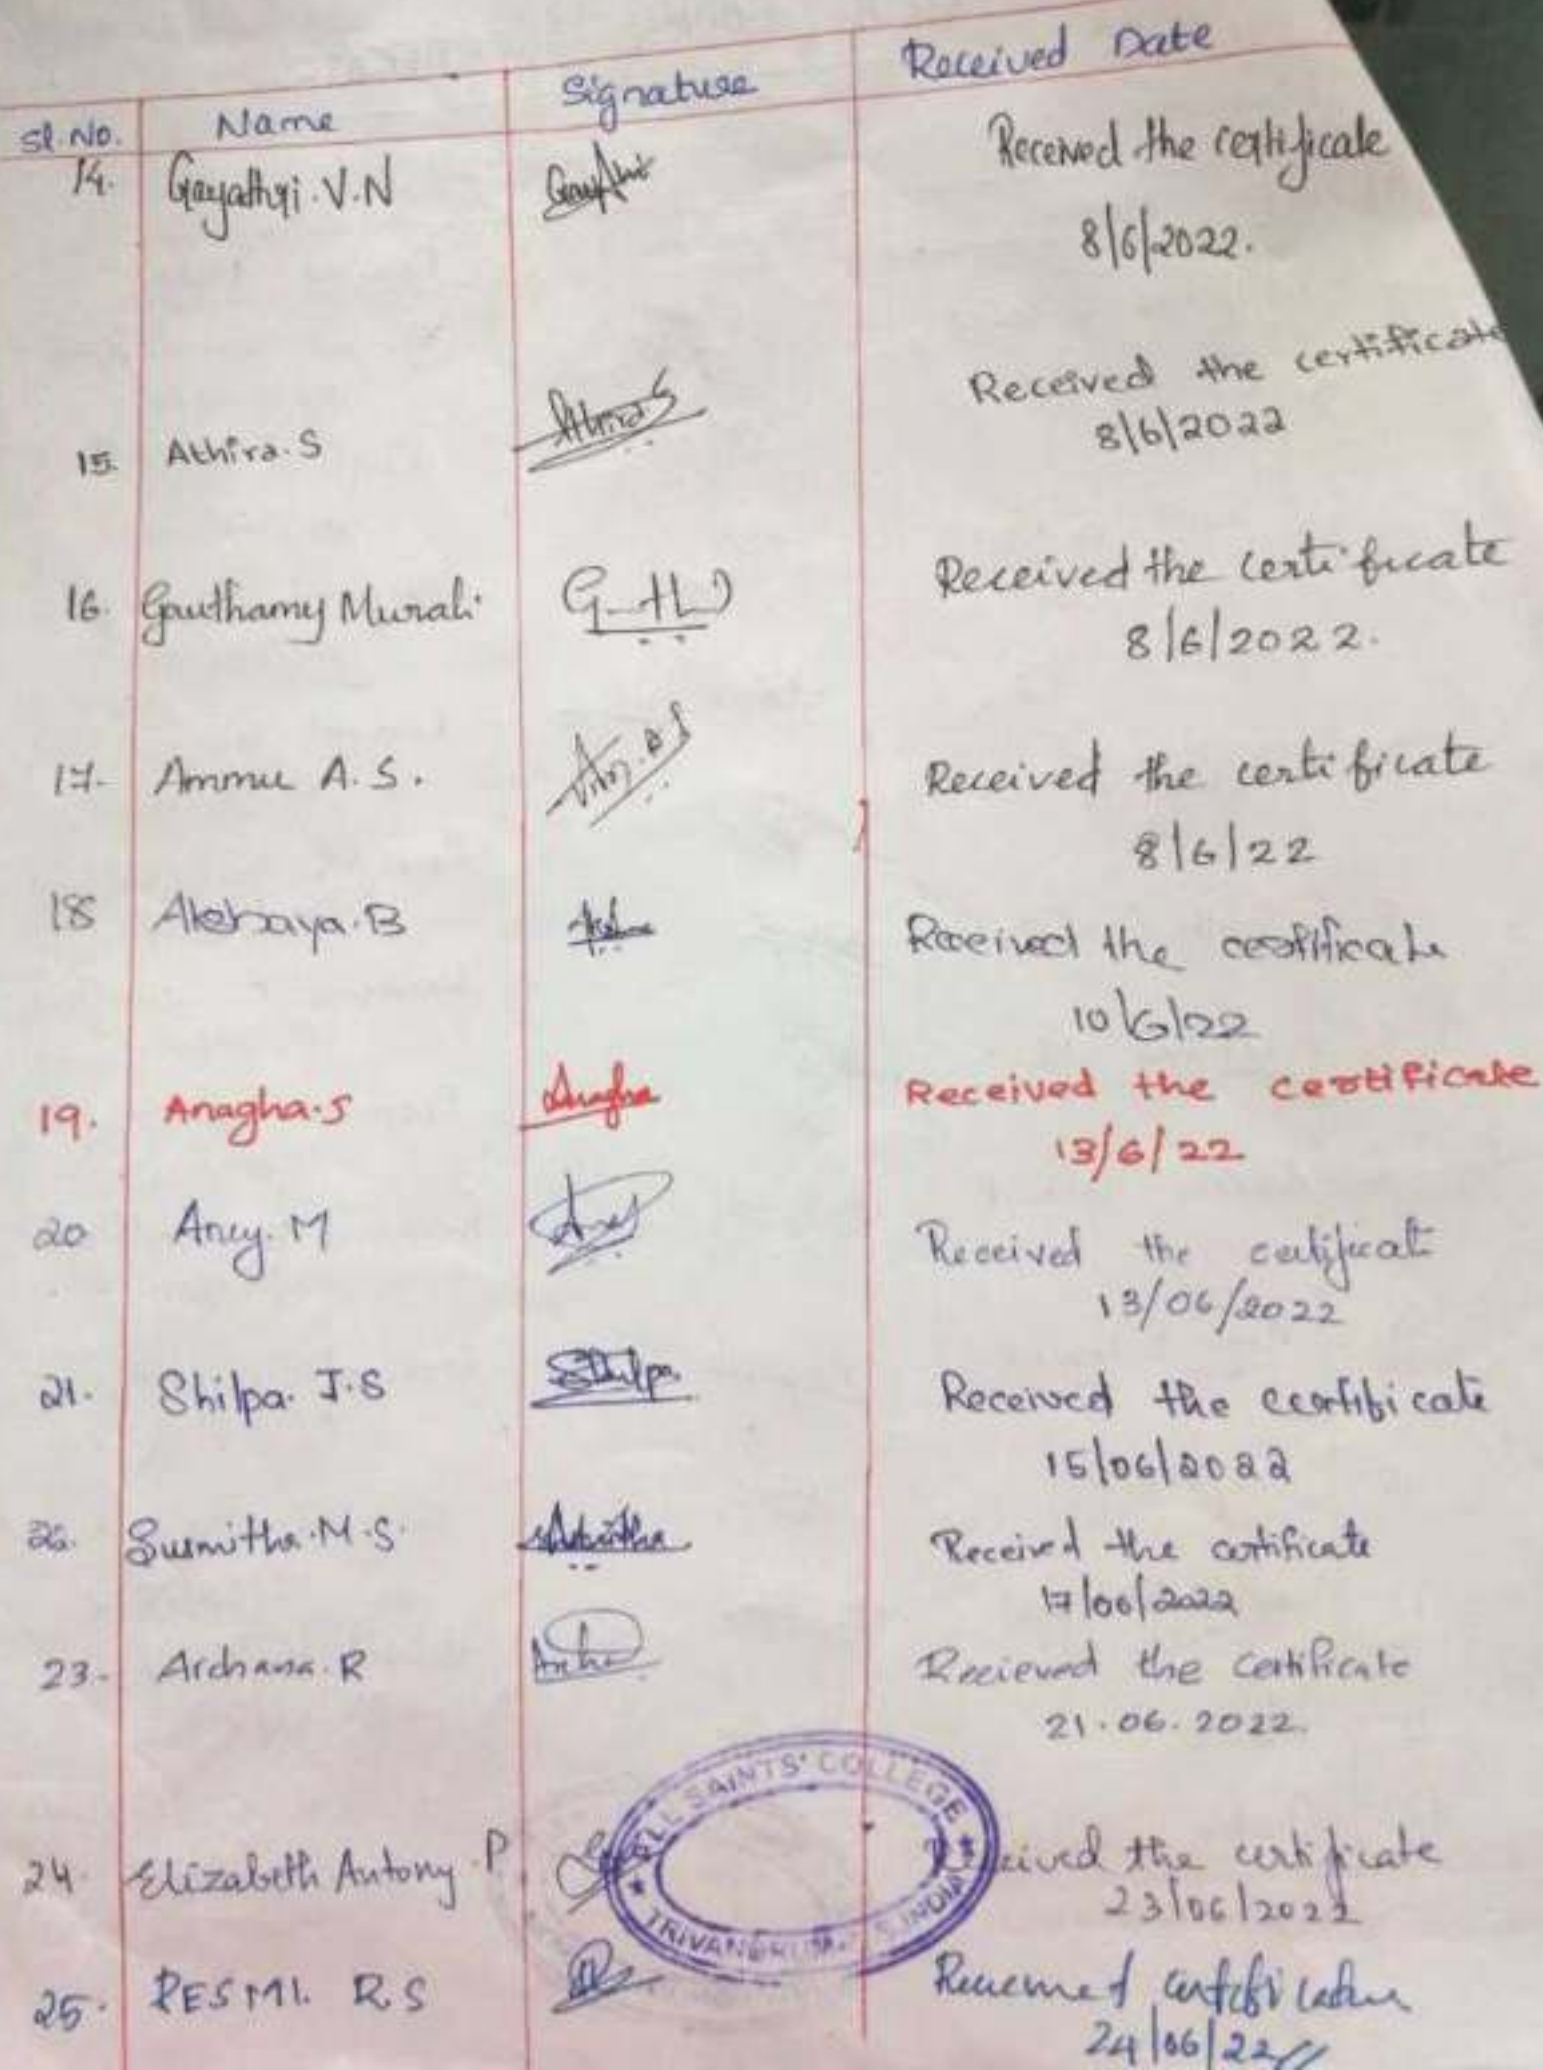 Sl. No. Name Signature Received Date
14. Gayathri. V. N Received the certificate
8/6/2022.
Received the certificate
15. Athira. S Athira S 8/6/2022
16. Gauthamy Murali Received the certificate
8/6/2022.
17. Ammu A. S. Received the certificate
8/6/22
18 Akshaya. B Received the certificate
10/6/22
19. Anagha. S Anagha Received the certificate
13/6/22
20 Ancy. M Received the certificate
13/06/2022
21. Shilpa. J. S Shilpa Received the certificate
15/06/2022
22. Susmitha. M. S. Received the certificate
17/06/2022
23. Archana. R Recieved the Certificate
21.06.2022.
ALL SAINTS' COLLEGE
24 Elizabeth Antony. P eived the certificate
23/06/2022
TRIVANDRUM. INDIA
25. RESMI. R. S
24/06/22